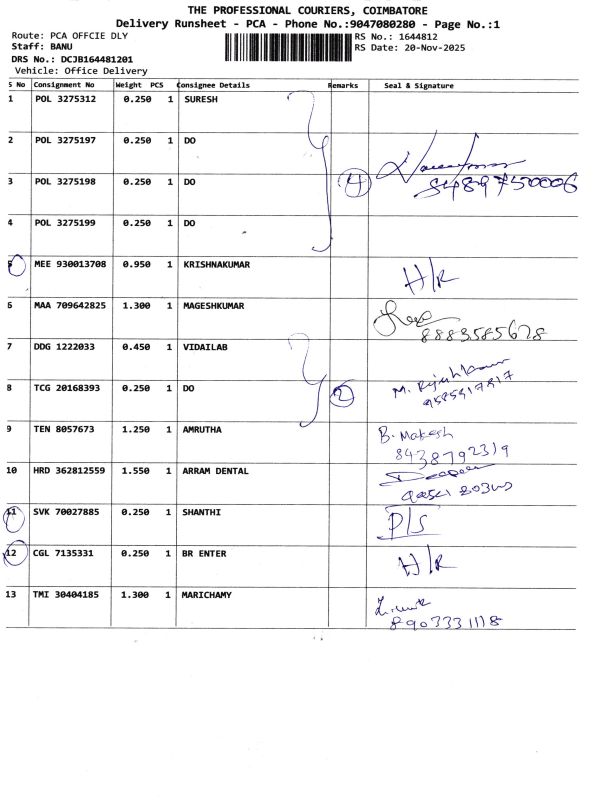 THE PROFESSIONAL COURIERS, COIMBATORE
Delivery Runsheet - PCA - Phone No.:9047080280 - Page No.:1
Route: PCA OFFCIE DLY RS No.: 1644812
Staff: BANU RS Date: 20-Nov-2025
DRS No.: DCJB164481201
Vehicle: Office Delivery
S No Consignment No Weight PCS Consignee Details Remarks Seal & Signature
1 POL 3275312 0.250 1 SURESH
2 POL 3275197 0.250 1 DO
3 POL 3275198 0.250 1 DO 4 8489750006
4 POL 3275199 0.250 1 DO
5 MEE 930013708 0.950 1 KRISHNAKUMAR H/R
6 MAA 709642825 1.300 1 MAGESHKUMAR
8883585678
7 DDG 1222033 0.450 1 VIDAILAB
8 TCG 20168393 0.250 1 DO 2 M.
9585517817
9 TEN 8057673 1.250 1 AMRUTHA B. Mahesh
8438792319
10 HRD 362812559 1.550 1 ARRAM DENTAL
11 SVK 70027885 0.250 1 SHANTHI D/S
12 CGL 7135331 0.250 1 BR ENTER H/R
13 TMI 30404185 1.300 1 MARICHAMY
8903331118